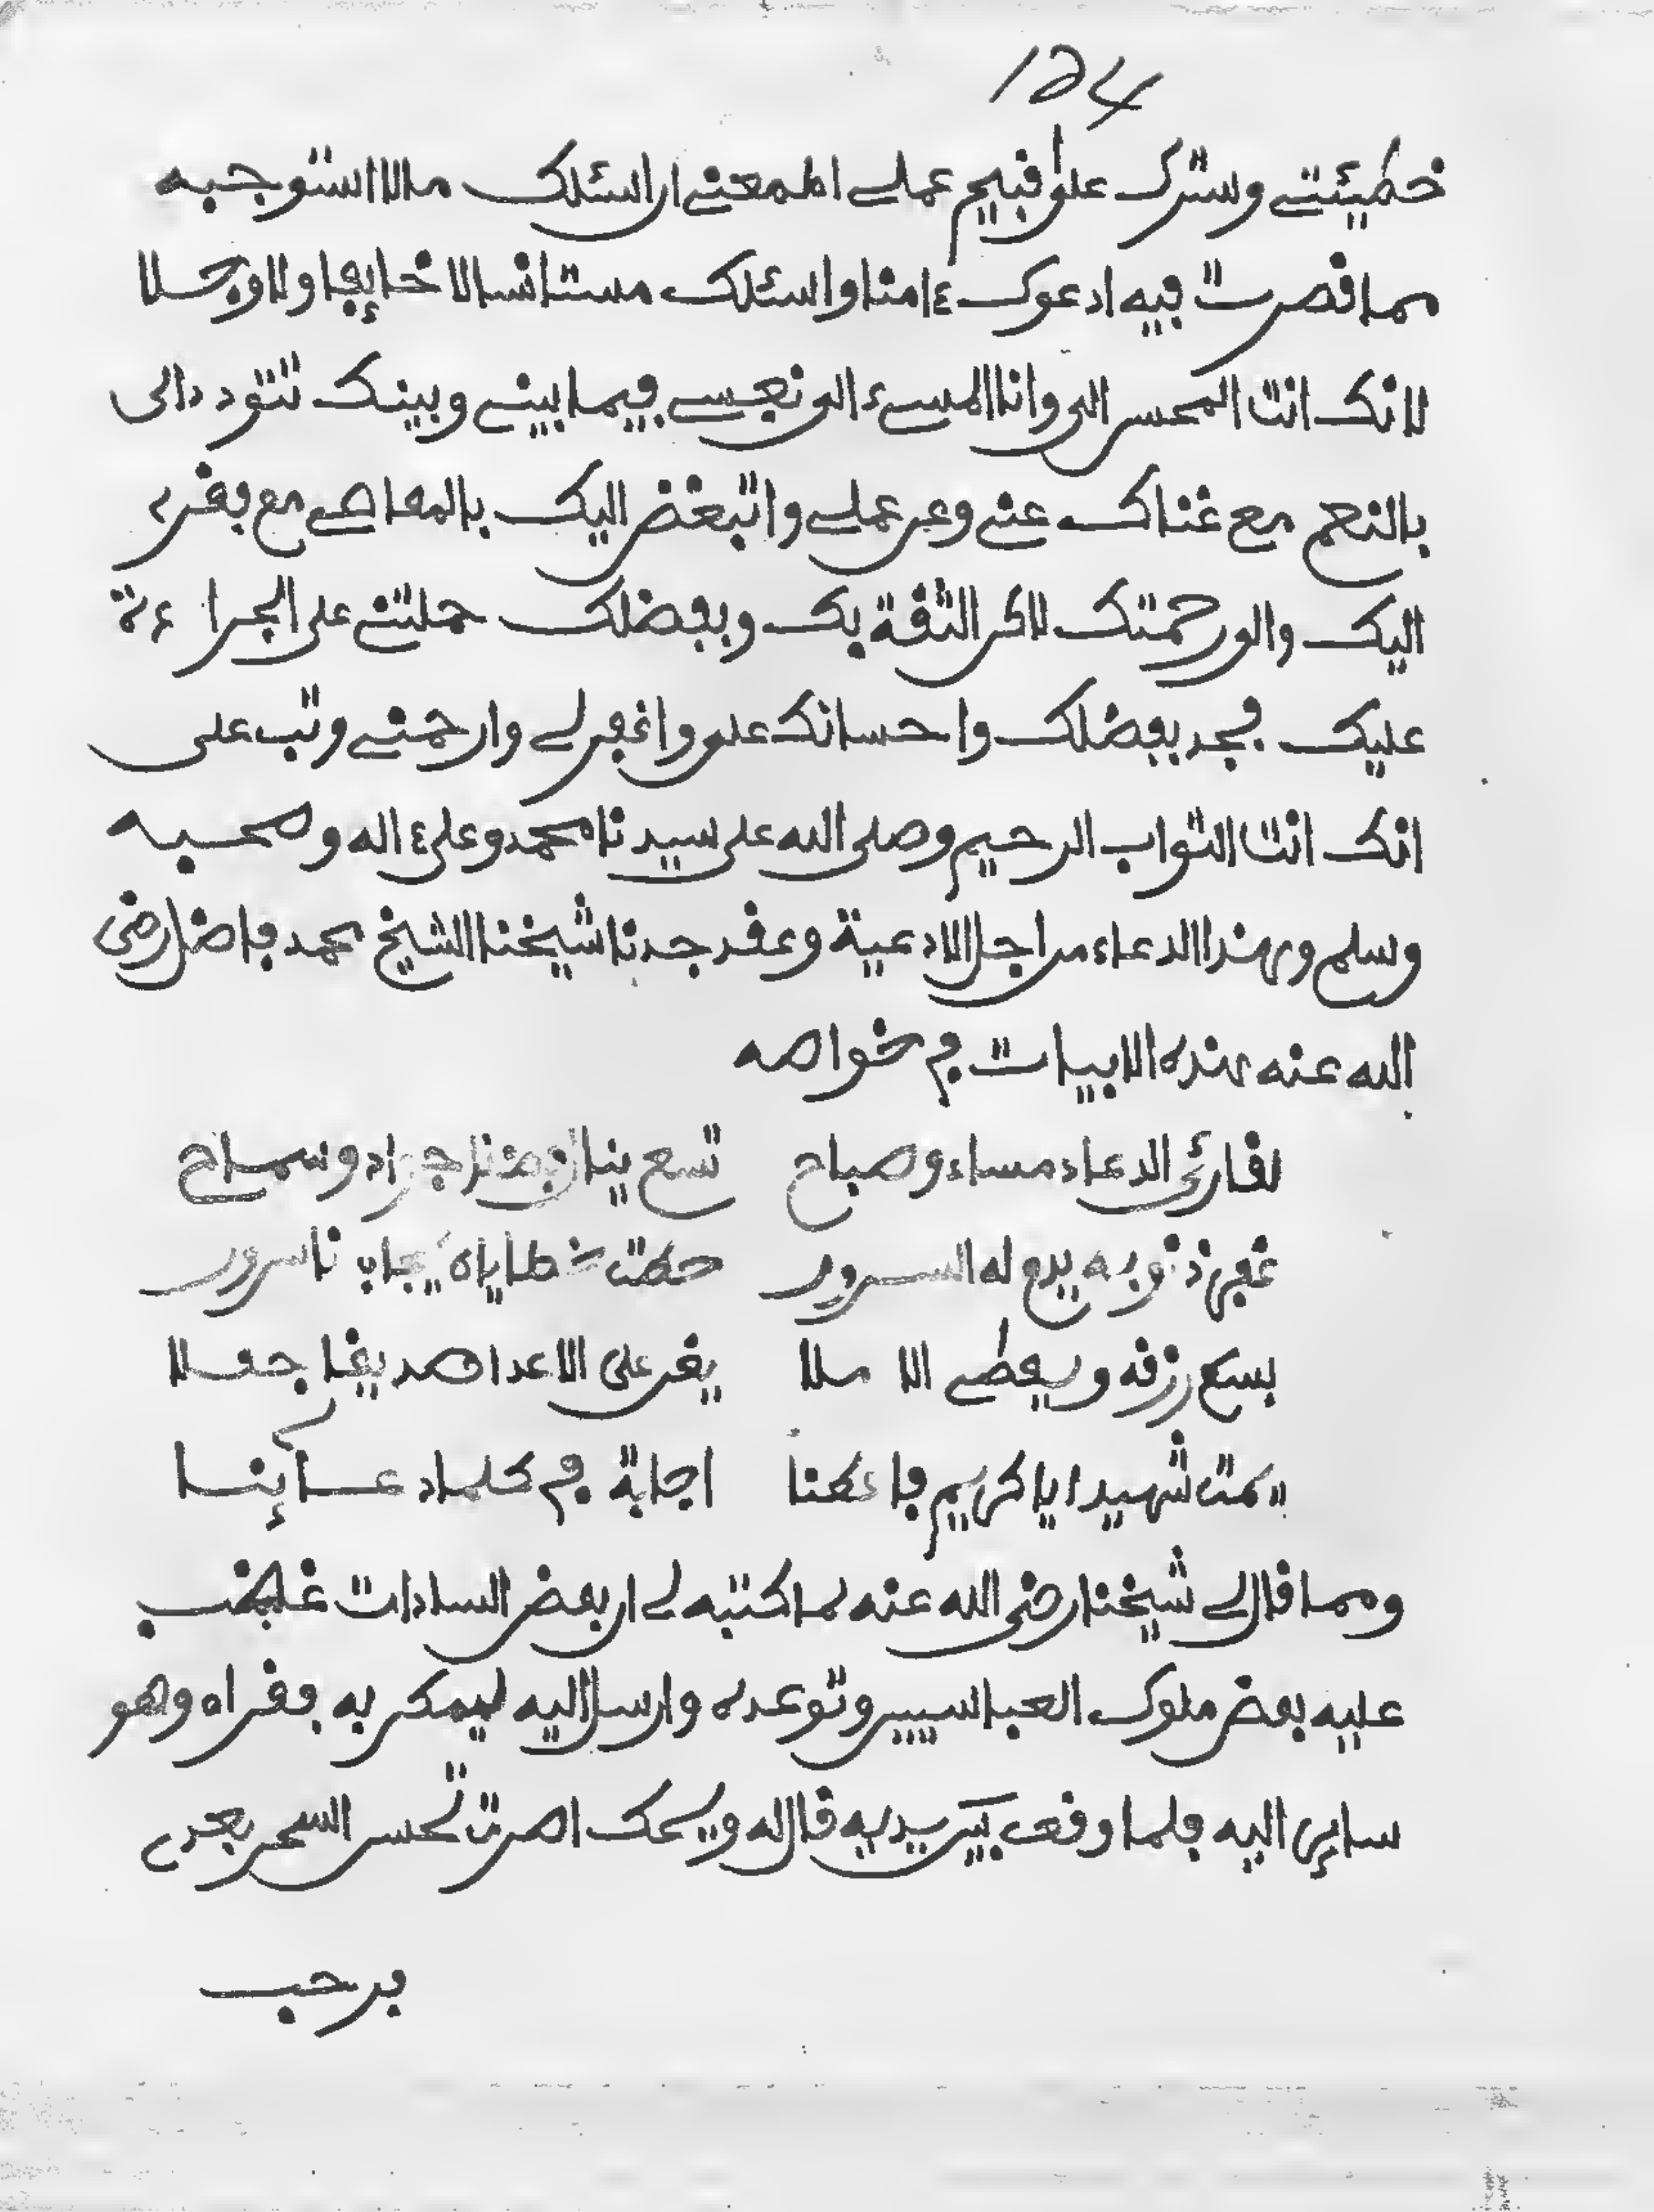 154
خطيئتي وسترك على قبيح عملي اطمعني ان اسئلك مالا استوجبه
مما قصرت فيه ادعوك ءامنا واسئلك مستانسا لا خايفا ولا وجلا
لانك انت المحسن الي وانا المسيء الى نفسي فيما بيني وبينك تتودد الى
بالنعم مع غناك عني وعن عملي واتبغض اليك بالمعاصي مع فقري
اليك والى رحمتك لاكن الثقة بك وبفضلك حملتني على الجراءة
عليك فجد بفضلك واحسانك علي واغفر لي وارحمني وتب على
انك انت التواب الرحيم وصلى الله على سيدنا محمد وعلى ءاله وصحبه
وسلم وهذا الدعاء من اجل الادعية وعقد جدنا شيخنا الشيخ محمد فاضل رضى
الله عنه هذه الابيات في خواصه
لقارئ الدعاء مساء وصباح تسع ينال جواد وسماح
غفر ذنوبه يدوم له السرور حطت خطاياه يجاب ناسرور
يسع رزقه ويعطى الا ملا يقر على الاعدا صديقا جعلا
يمت شهيدا يا كريم فاعطنا اجابة في كلما دعائنا
ومما قال لي شيخنا رضى الله عنه لما كتبه لي ان بعض السادات غضب
عليه بعض ملوك العباسيين وتوعده وارسل اليه ليمكر به فقراه وهو
ساير اليه فلما وقف بين يديه قال له ويحك اصرت تحسن السحر بعدي
فرحب